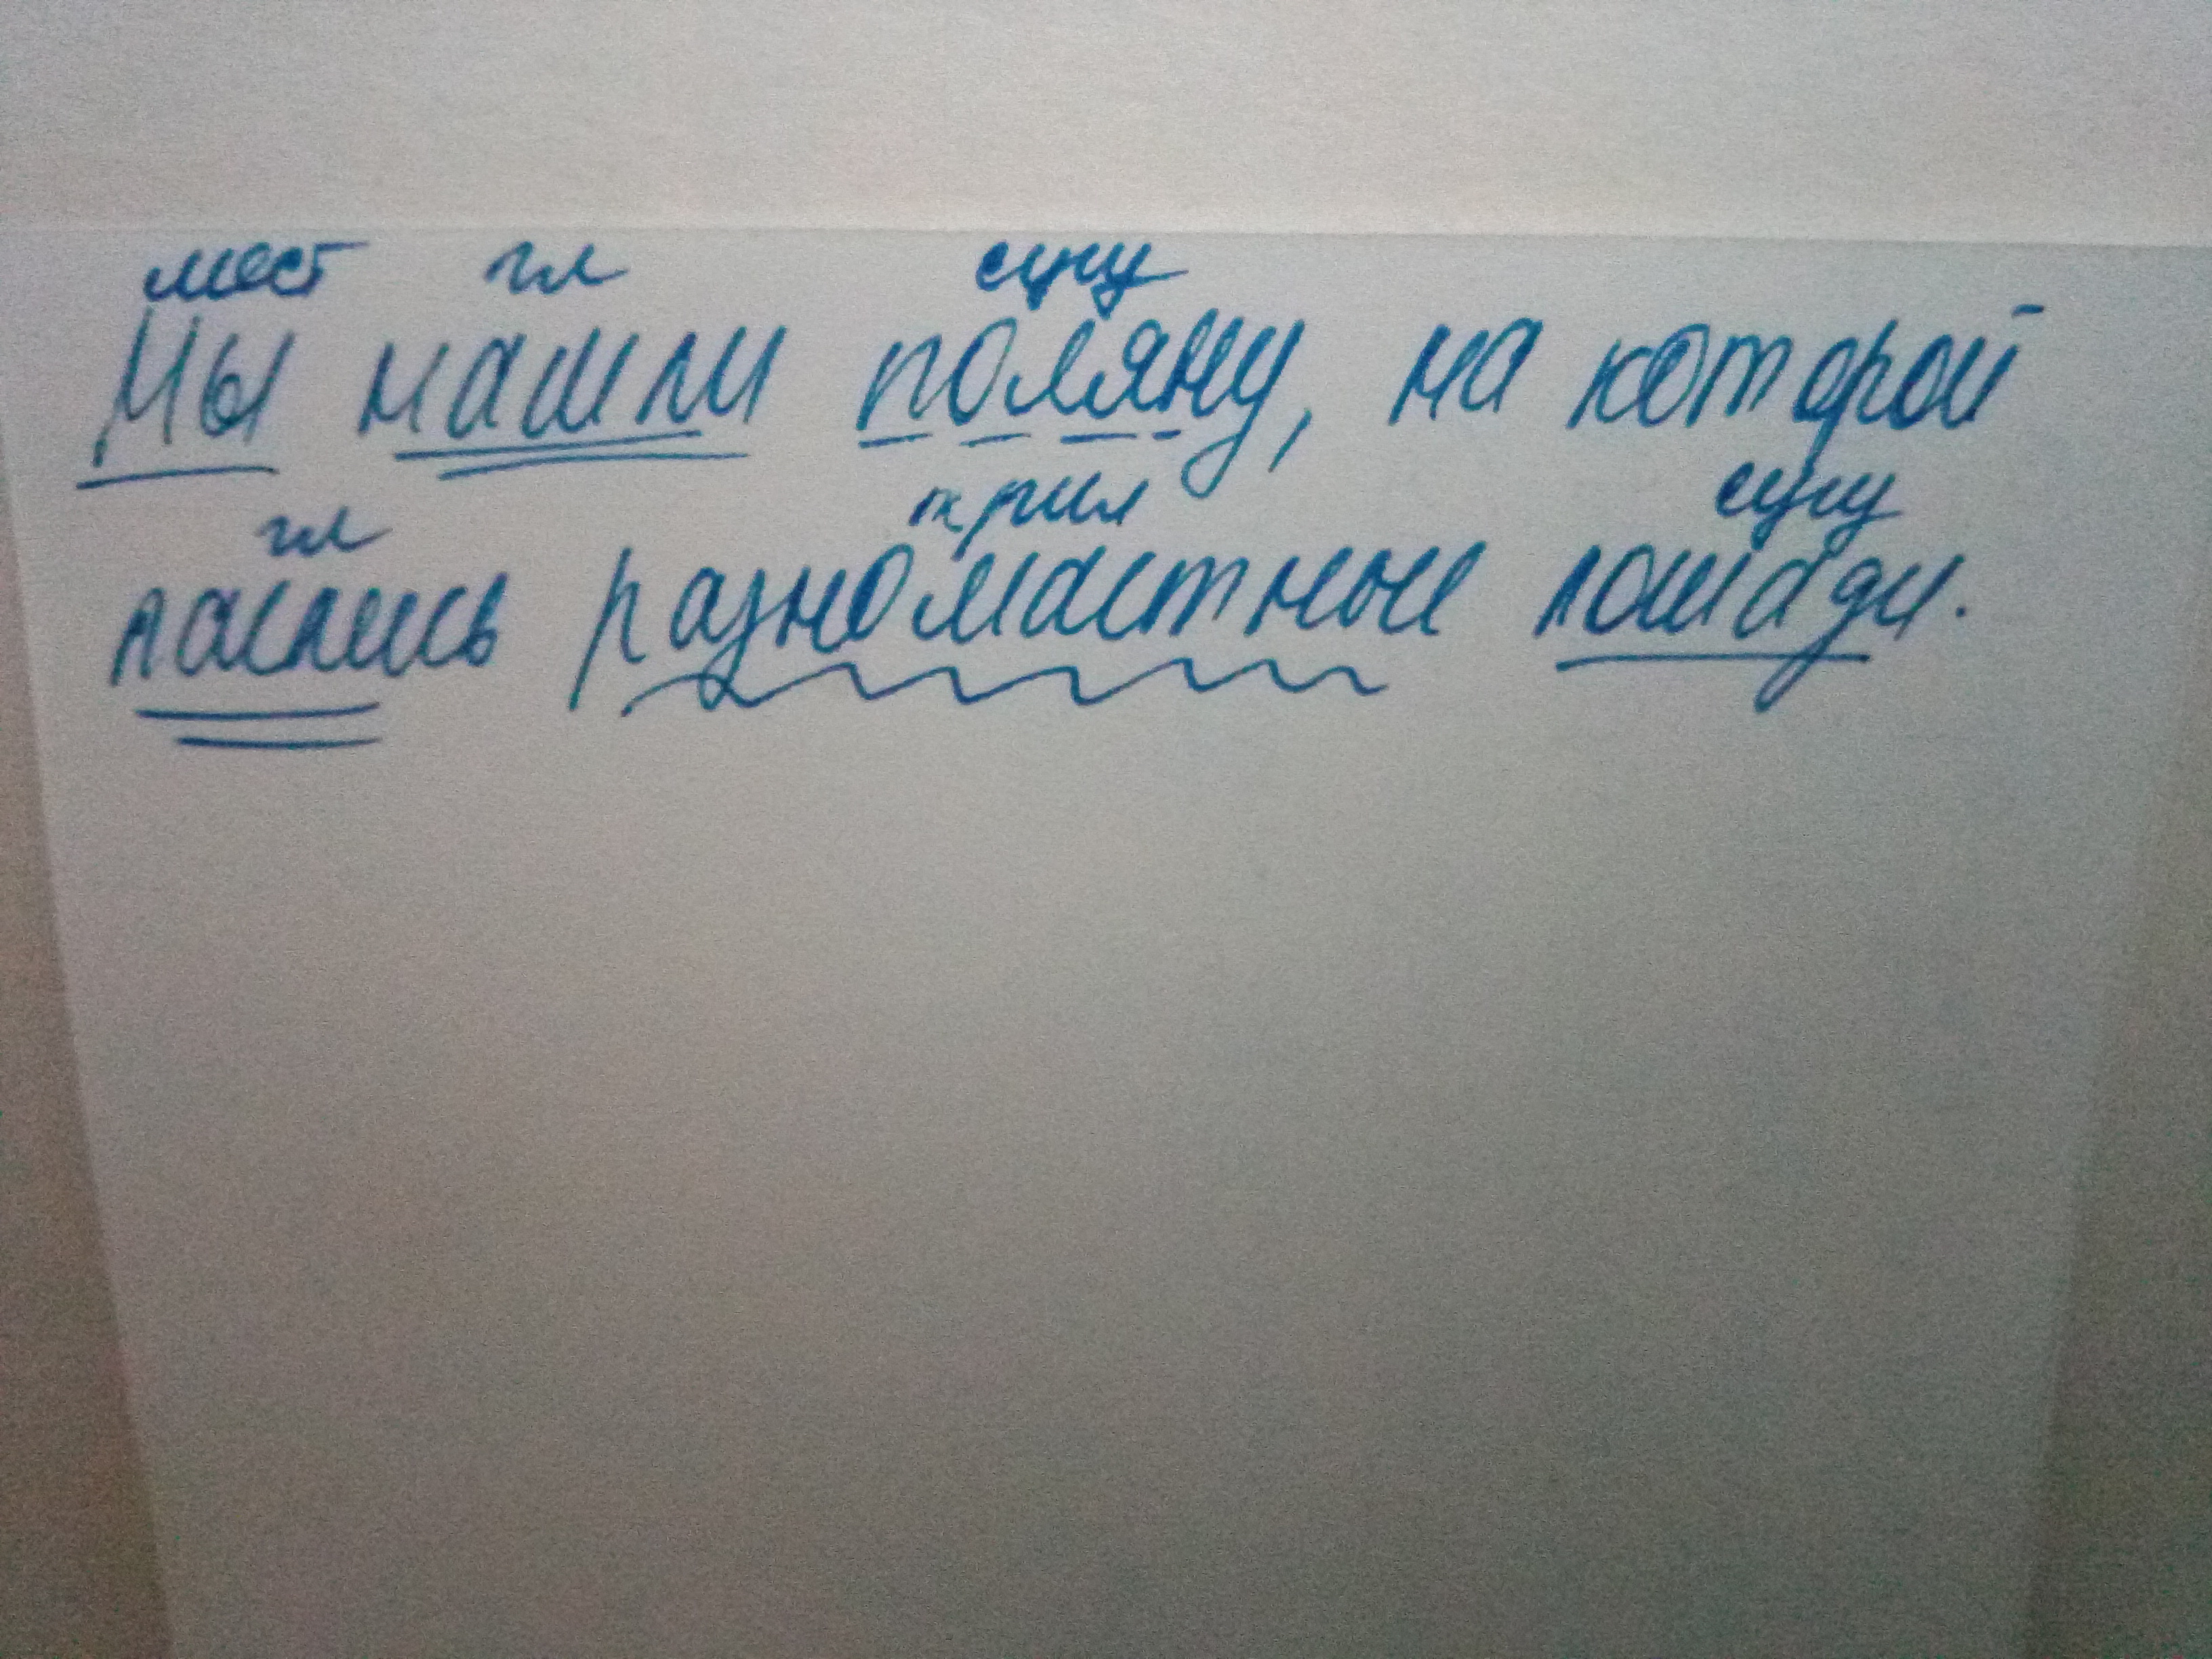 мест гл сущ
Мы нашли поляну, на которой
гл прил сущ
паслись разномастные лошади.